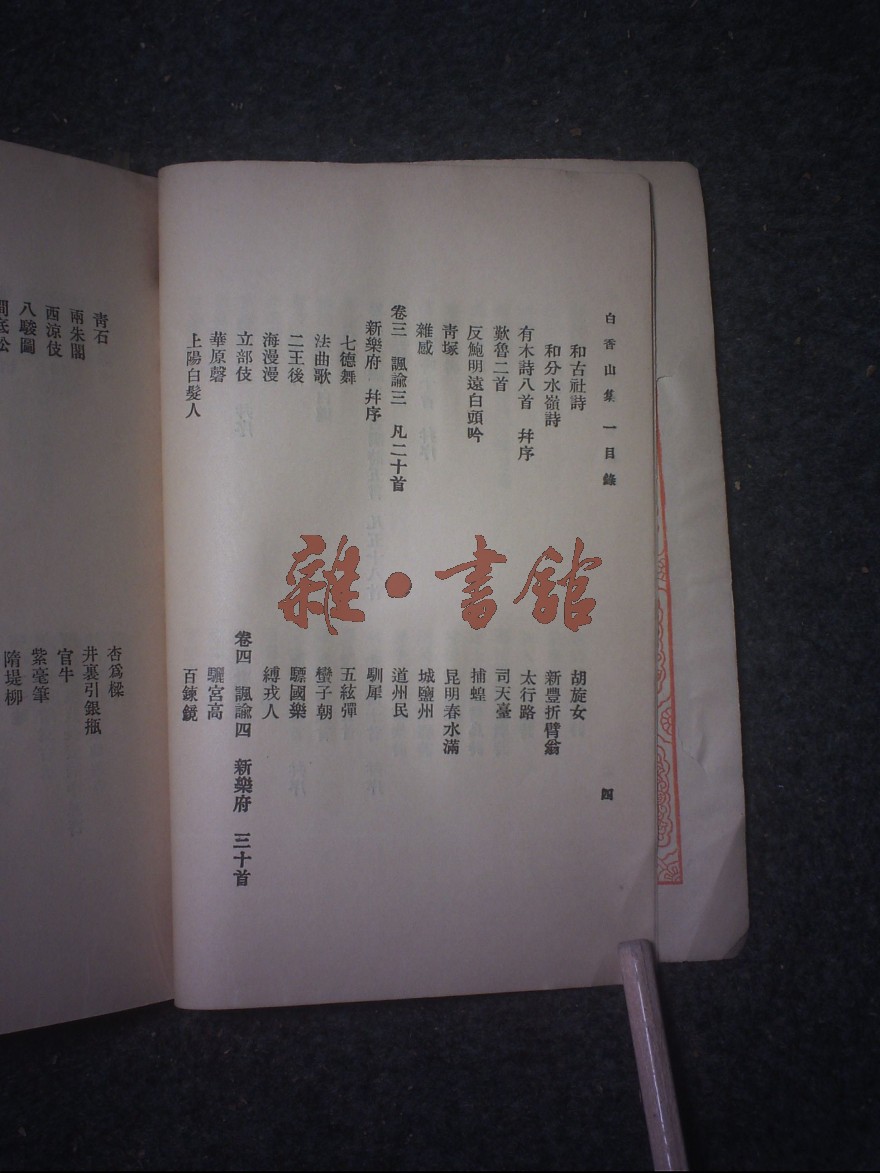 白香山集 一 目錄
四
和古社詩
和分水嶺詩
有木詩八首 幷序
歎魯二首
反鮑明遠白頭吟
靑塚
雜感
卷三 諷諭三 凡二十首
新樂府 幷序
七德舞
法曲歌
二王後
海漫漫
立部伎
華原磬
上陽白髮人
胡旋女
新豐折臂翁
太行路
司天臺
捕蝗
昆明春水滿
城鹽州
道州民
馴犀
五絃彈
蠻子朝
驃國樂
縛戎人
卷四 諷諭四 新樂府 三十首
驪宮高
百鍊鏡
靑石
兩朱閣
西涼伎
八駿圖
澗底松
杏爲樑
井裏引銀瓶
官牛
紫毫筆
隋堤柳
雜·書館